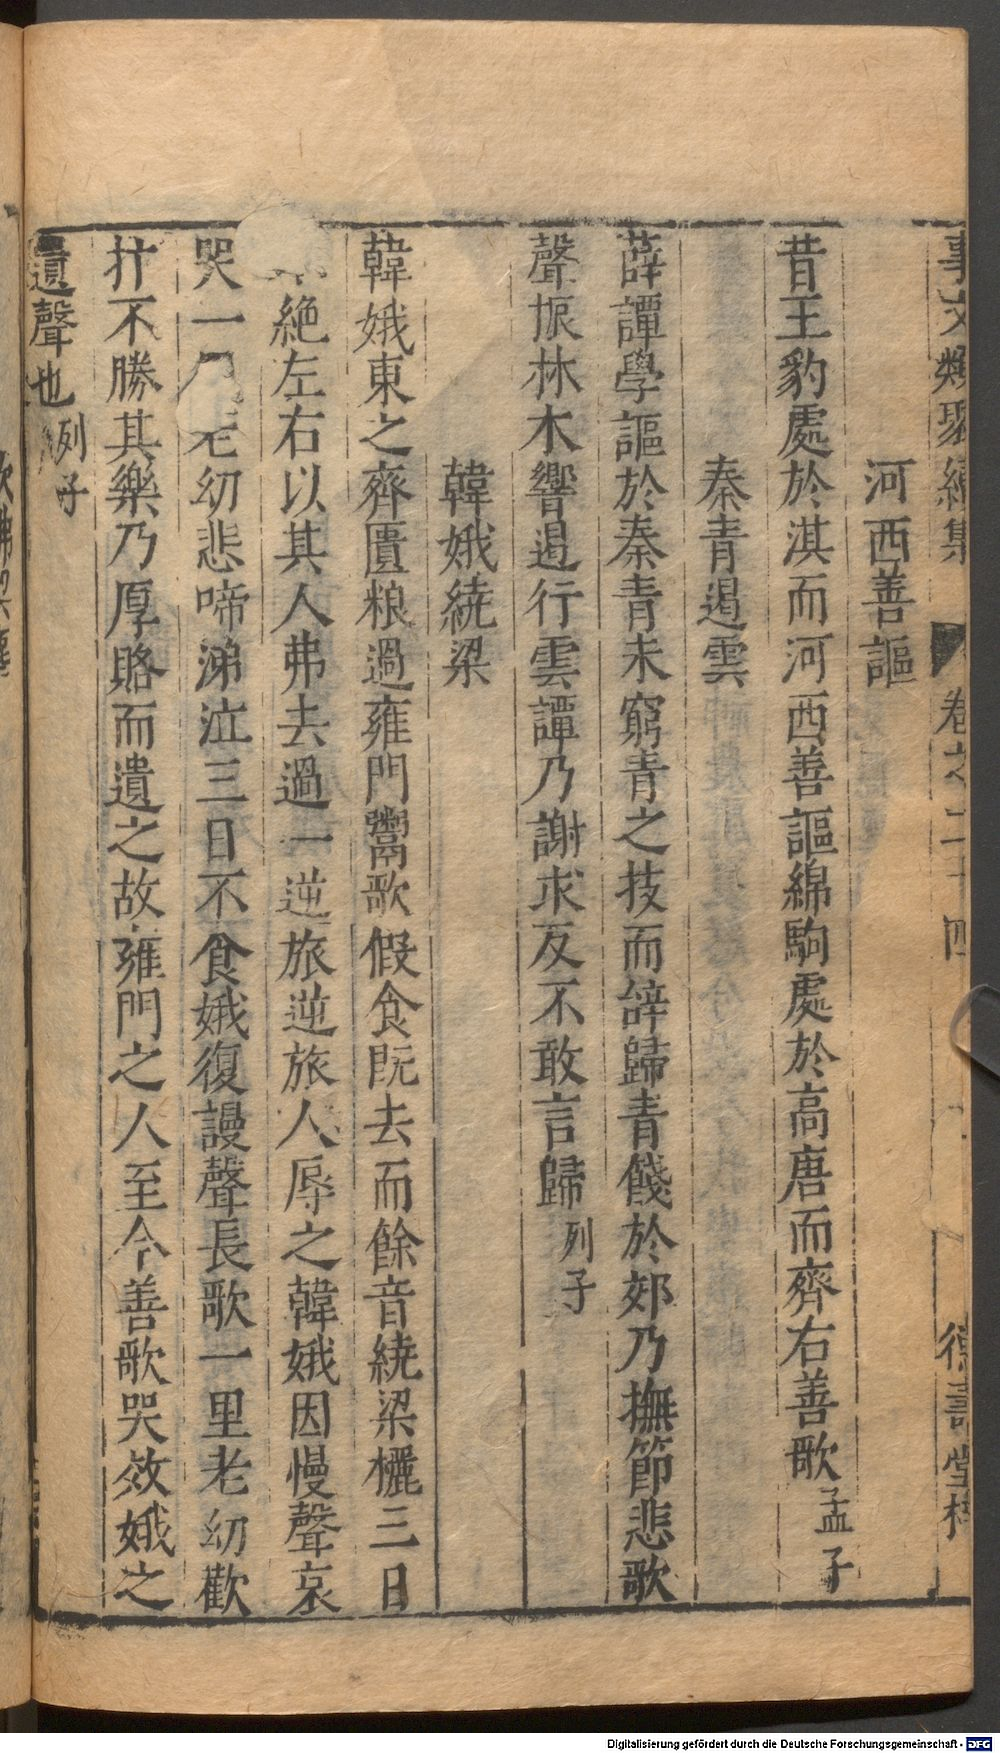 事文類聚續集 卷之二十四 德壽堂梓
河西善謳
昔王豹處於淇而河西善謳綿駒處於高唐而齊右善歌孟子
秦青遏雲
薛譚學謳於秦青未窮青之技而辞歸青餞於郊乃撫節悲歌
聲振林木響遏行雲譚乃謝求反不敢言歸列子
韓娥繞梁
韓娥東之齊匱粮過雍門鬻歌假食既去而餘音繞梁欐三日
絶左右以其人弗去過一逆旅逆旅人辱之韓娥因慢聲哀
哭一老幼悲啼涕泣三日不食娥復謾聲長歌一里老幼歡
抃不勝其樂乃厚賂而遺之故雍門之人至今善歌哭效娥之
遺聲也列子
Digitalisierung gefördert durch die Deutsche Forschungsgemeinschaft - DFG